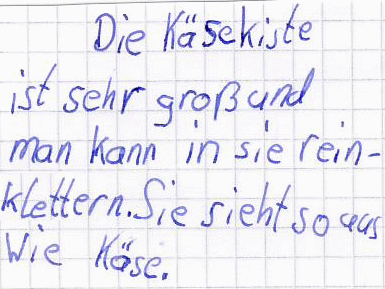 Die Käsekiste
ist sehr groß und
man kann in sie rein-
klettern. Sie sieht so aus
Wie Käse.